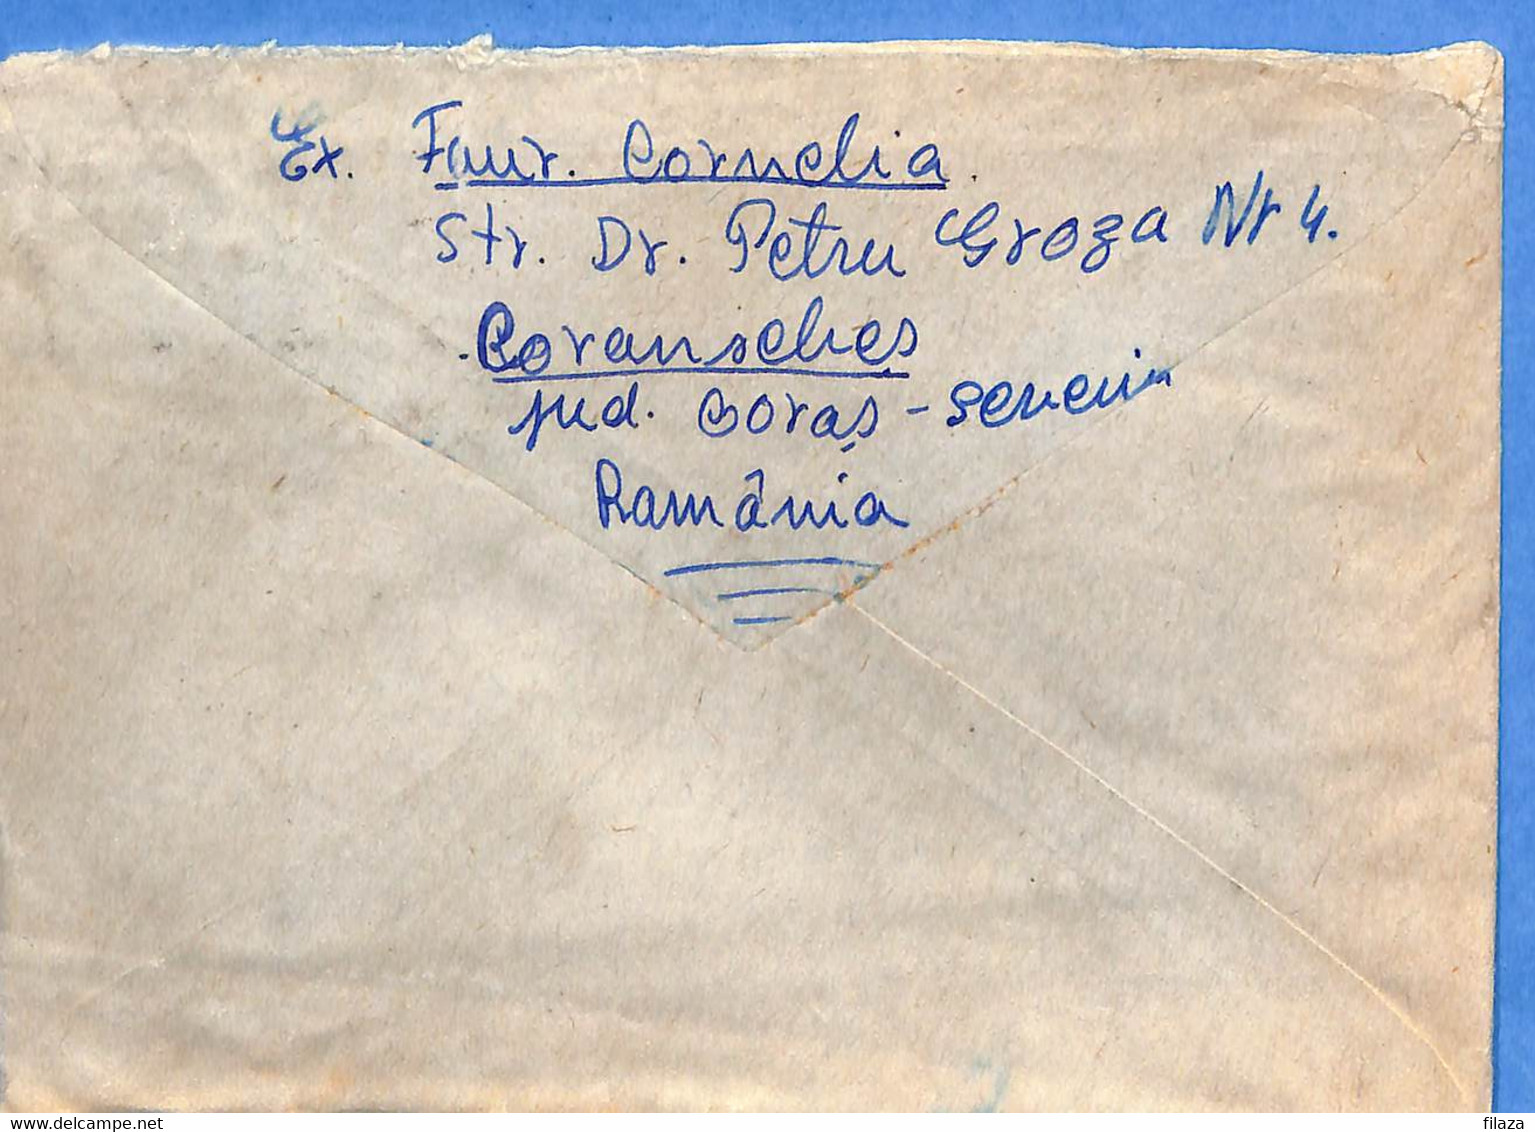 Ex. Faur. Cornelia.
Str. Dr. Petru Groza Nr 4.
Caransebeș
jud. Caraș - Severin
România
delcampe.net
filaza